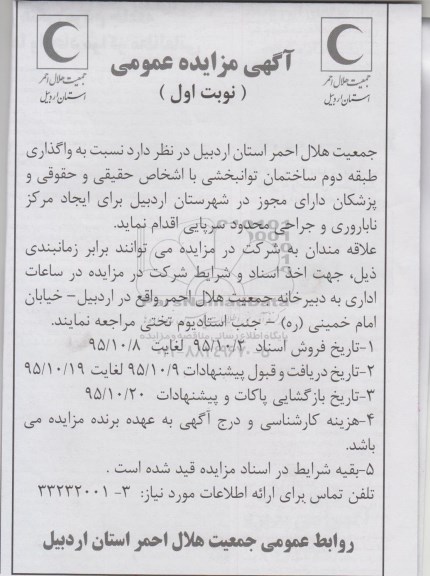 آگهی مزایده عمومی
( نوبت اول )
جمعیت هلال احمر
استان اردبیل
جمعیت هلال احمر
استان اردبیل
جمعیت هلال احمر استان اردبیل در نظر دارد نسبت به واگذاری
طبقه دوم ساختمان توانبخشی با اشخاص حقیقی و حقوقی و
پزشکان دارای مجوز در شهرستان اردبیل برای ایجاد مرکز
ناباروری و جراحی محدود سرپایی اقدام نماید.
علاقه مندان به شرکت در مزایده می توانند برابر زمانبندی
ذیل، جهت اخذ اسناد و شرایط شرکت در مزایده در ساعات
اداری به دبیرخانه جمعیت هلال احمر واقع در اردبیل- خیابان
امام خمینی (ره) – جنب استادیوم تختی مراجعه نمایند.
۱-تاریخ فروش اسناد ۹۵/۱۰/۴ لغایت ۹۵/۱۰/۸
۲-تاریخ دریافت و قبول پیشنهادات ۹۵/۱۰/۹ لغایت ۹۵/۱۰/۱۹
۳-تاریخ بازگشایی پاکات و پیشنهادات ۹۵/۱۰/۲۰
۴-هزینه کارشناسی و درج آگهی به عهده برنده مزایده می
باشد.
۵-بقیه شرایط در اسناد مزایده قید شده است .
تلفن تماس برای ارائه اطلاعات مورد نیاز: ۳- ۳۳۲۳۲۰۰۱
روابط عمومی جمعیت هلال احمر استان اردبیل